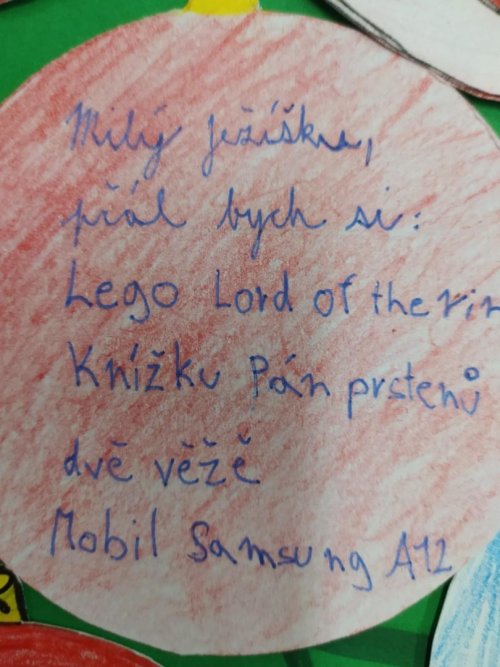 Milý ježíšku,
přál bych si:
Lego Lord of the rin
Knížku Pán prstenů
dvě věžě
Mobil Samsung A12